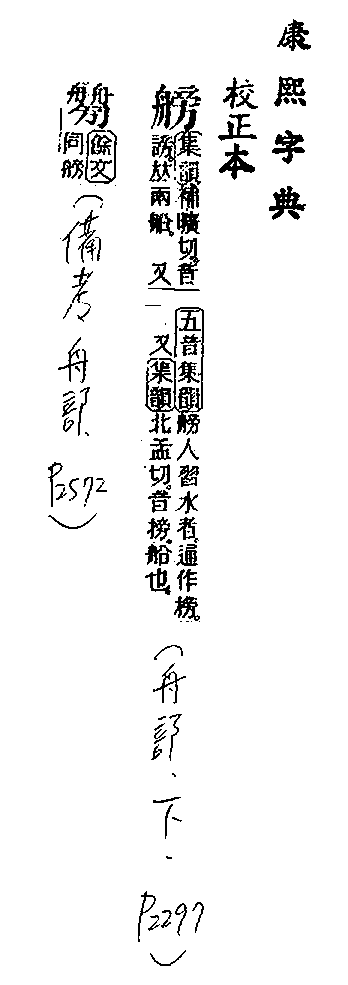 康熙字典
校正本
艕集韻補曠切。音
謗。𠀤兩船。又
五音集韻艕人習水者。通作榜。
又集韻北孟切。音榜。船也。
(舟部、下. P2297)
餘文
同艕
(備考舟部、P2572)